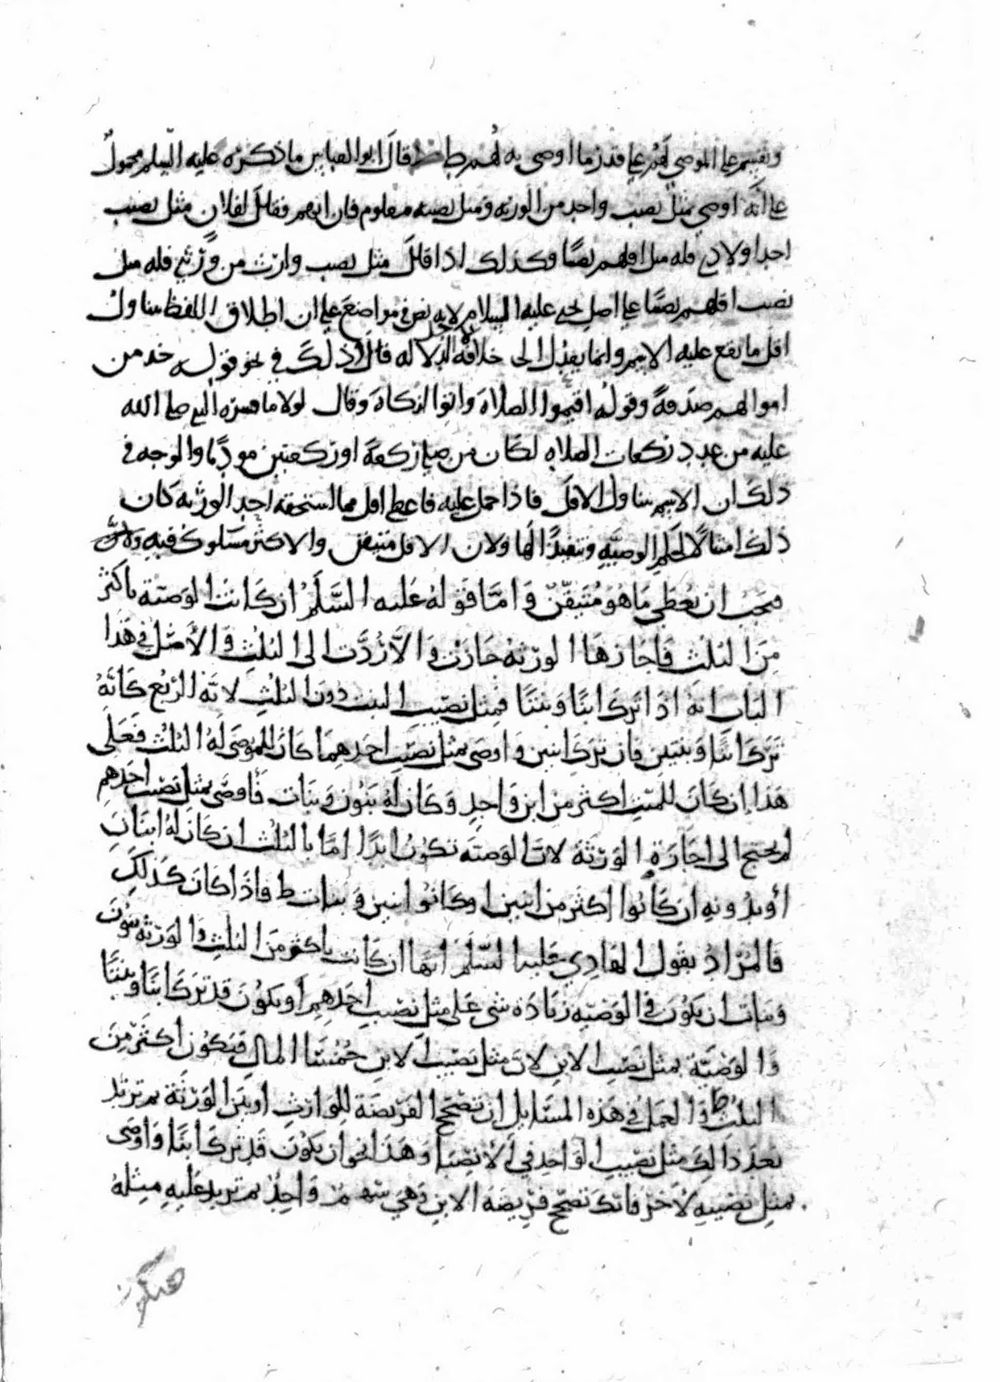 ويقسم على الموصى لهم على قدر ما اوصى به لهم ط قال ابو العباس ما ذكره عليه السلم محمول
على انه اوصى بمثل نصيب واحد من الورثه ومثل نصيبه معلوم فان ابهم فقال لفلان مثل نصيب
احد اولادي فله مثل اقلهم نصيبا وكذلك اذا قال مثل نصيب وارث من ورثتي فله مثل
نصيب اقلهم نصيبا على اصل يحيى عليه السلام لانه نص في مواضع على ان اطلاق اللفظ يتناول
اقل ما يقع عليه الاسم وانما يعدل الى خلافه لدلاله قال ذلك في نحو قوله خذ من
اموالهم صدقة وقوله اقيموا الصلاة واتوا الزكاة وقال لولا ما فسره النبي صلى الله
عليه من عدد ركعات الصلاه لكان من صلى ركعة او ركعتين مؤديا والوجه في
ذلك ان الاسم يتناول الاقل فاذا حمل عليه فاعطي اقل مما استحقه احد الورثه كان
ذلك امتثالا لحكم الوصية وتنفيذا لها ولان الاقل متيقن والاكثر مشكوك فيه
فيجب ان يعطى ما هو متيقن واما قوله عليه السلم ان كانت الوصية باكثر
من الثلث فاجازها الورثة جازت والا ردت الى الثلث والاصل في هذا
الباب انه اذا ترك ابنا وبنتا فمثل نصيب البنت دون الثلث لانه الربع كانه
ترك ابنا وبنتين فان ترك ابنين واوصى بمثل نصيب احدهما كان للموصى له الثلث فعلى
هذا ان كان للميت اكثر من ابن واحد وكان له بنون وبنات فاوصى بمثل نصيب احدهم
لم يحتج الى اجازة الورثة لان الوصية تكون ابدا اما بالثلث ان كان له ابنان
او بدونه ان كانوا اكثر من اثنين او كانوا ابنين وبنات ط فاذا كان كذلك
فالمراد بقول الهادي عليه السلم انها ان كانت باكثر من الثلث والورثة بنون
وبنات ان يكون في الوصيه زيادة شي على مثل نصيب احدهم او يكون قد ترك ابنا وبنتا
والوصية بمثل نصيب الابن لان مثل نصيب الابن خمسا المال فيكون اكثر من
الثلث ط والعمل في هذه المسائل ان تصحح الفريضة للوارث او بين الورثة ثم تزيد
بعد ذلك مثل نصيب الواحد في الانصبا وهذا نحو ان يكون قد ترك ابنا واوصى
بمثل نصيبه لاخر فانك تصحح فريضة الابن وهي سهم واحد ثم تزيد عليه مثله